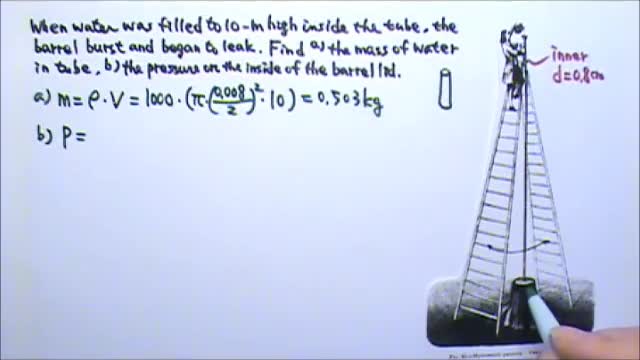 When water was filled to 10-m high inside the tube, the
barrel burst and began to leak. Find a) the mass of water
in tube, b) the pressure on the inside of the barrel lid.
a) m = ρ · V = 1000 · (π · (0.008/2)² · 10) = 0.503 kg
b) P =
inner
d=0.8cm